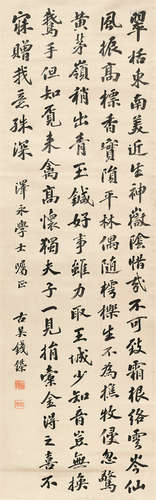 翠栝東南美近生神嶽陰惜哉不可致霜根絡雲岑仙
風振高標香實隕平林偶隨樗櫟生不為樵牧侵忽驚
黃茅嶺稍出青玉鍼好事雖力取王城少知音豈無換
鵞手但知覓來禽高懷獨夫子一見捐橐金得之喜不
寐贈我意殊深
澤永學士囑正
古吳錢棨